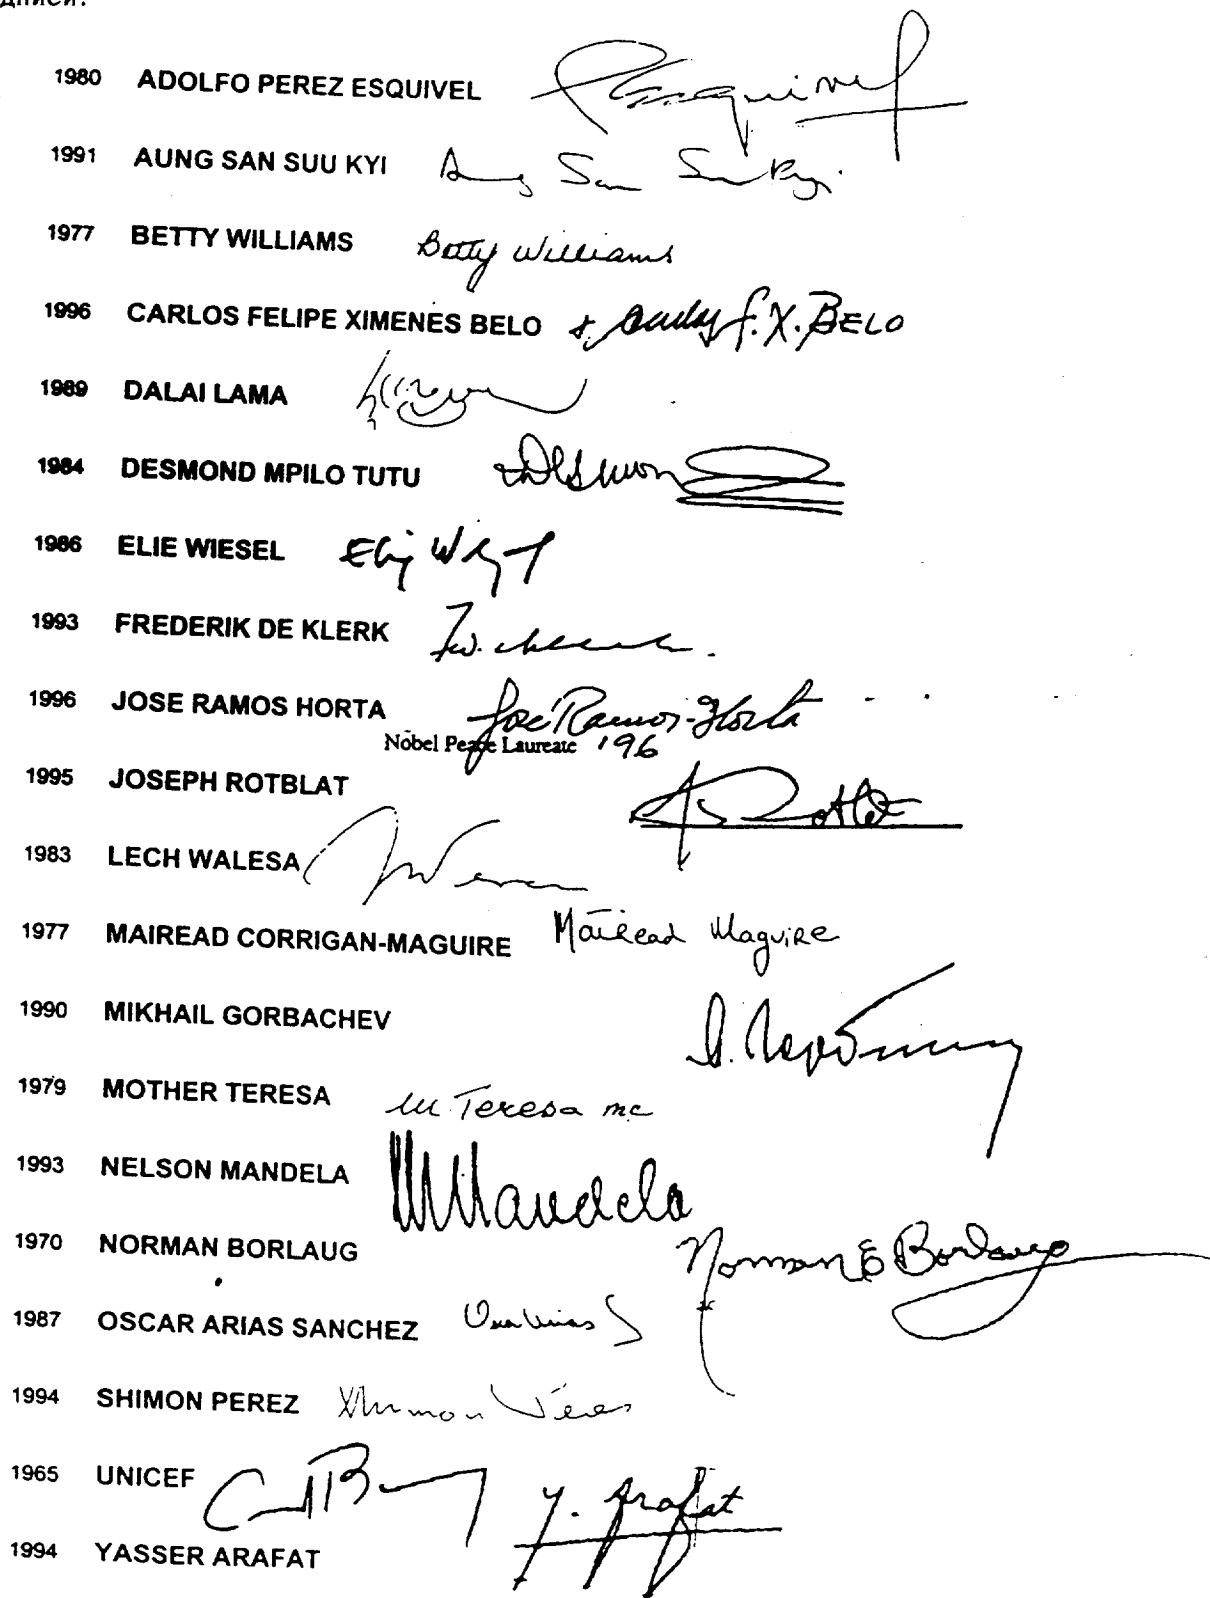 1980 ADOLFO PEREZ ESQUIVEL
1991 AUNG SAN SUU KYI Aung San Suu Kyi
1977 BETTY WILLIAMS Betty Williams
1996 CARLOS FELIPE XIMENES BELO F.X. BELO
1989 DALAI LAMA
1984 DESMOND MPILO TUTU
1986 ELIE WIESEL
1993 FREDERIK DE KLERK
1996 JOSE RAMOS HORTA José Ramos-Horta
Nobel Peace Laureate '96
1995 JOSEPH ROTBLAT
1983 LECH WALESA
1977 MAIREAD CORRIGAN-MAGUIRE Mairead Maguire
1990 MIKHAIL GORBACHEV
1979 MOTHER TERESA M Teresa mc
1993 NELSON MANDELA Mandela
1970 NORMAN BORLAUG Norman E Borlaug
1987 OSCAR ARIAS SANCHEZ
1994 SHIMON PEREZ Shimon Peres
1965 UNICEF
1994 YASSER ARAFAT Y. Arafat